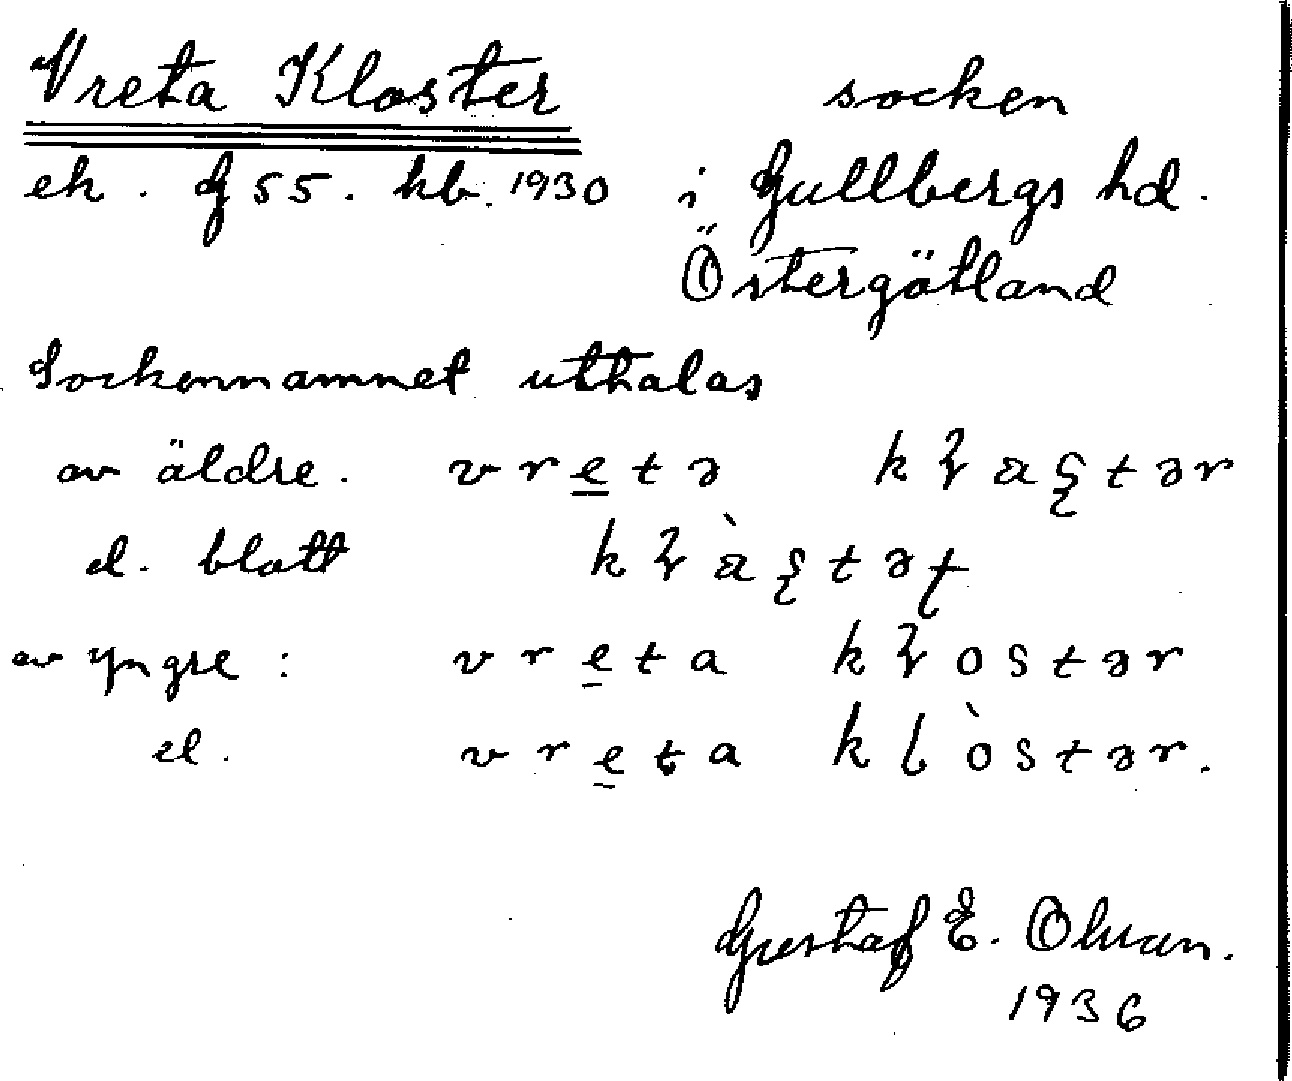 Vreta Kloster socken
ek. G 55. kb. 1930 i Gullbergs hd.
Östergötland
Sockennamnet uthalas
av äldre. vretə
el. blott
av yngre: vreta kɽostər
el. vreta klòstər.
Gustaf E. Olsson.
1936